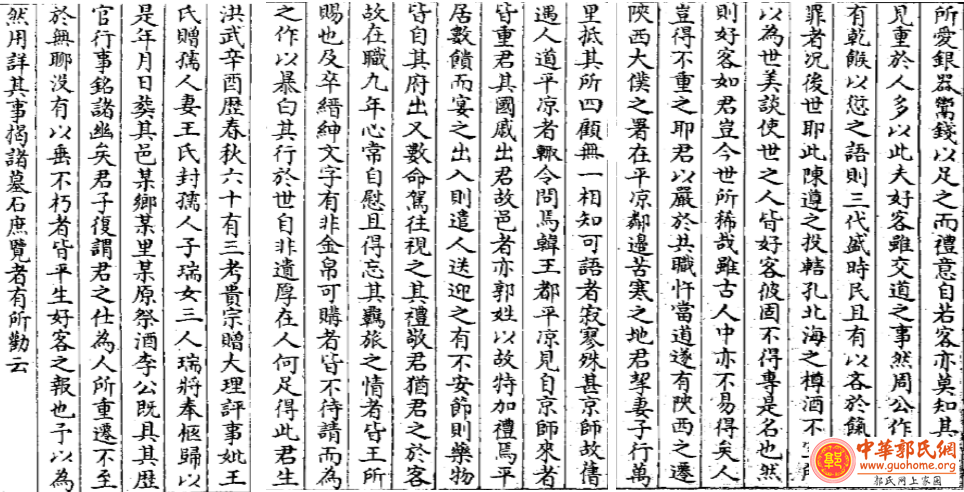 所愛銀器鬻錢以足之而禮意自若客亦莫知其
見重於人多以此夫好客雖交道之事然周公作
有乾餱以愆之語則三代盛時民且有以客於餱
罪者況後世耶此陳遵之投轄孔北海之樽酒不空所
以為世美談使世之人皆好客彼固不得專是名也然
則好客如君豈今世所稀哉雖古人中亦不易得矣人
豈得不重之耶君以嚴於其職忤當道遂有陝西之遷
陝西大僕之署在平凉鄰邊苦寒之地君挈妻子行萬
里抵其所四顧無一相知可語者寂寥殊甚京師故舊
遇人道平凉者輙令問焉韓王都平凉見自京師來者
皆重君其國戚出君故邑者亦郭姓以故特加禮焉平
居數饋而宴之出入則遣人送迎之有不安節則藥物
皆自其府出又數命駕往視之其禮敬君猶君之於客
故在職九年心常自慰且得忘其羈旅之情者皆王所
賜也及卒縉紳文字有非金帛可購者皆不待請而為
之作以暴白其行於世自非遺厚在人何足得此君生
洪武辛酉歷春秋六十有三考貴宗贈大理評事妣王
氏贈孺人妻王氏封孺人子瑞女三人瑞將奉柩歸以
是年月日葬其邑某鄉某里某原祭酒李公既具其歷
官行事銘諸幽矣君子復謂君之仕為人所重遷不至
於無聊沒有以垂不朽者皆平生好客之報也予以為
然用詳其事揭諸墓石庶覽者有所勸云
中華郭氏網
www.guohome.org
郭氏网上家园